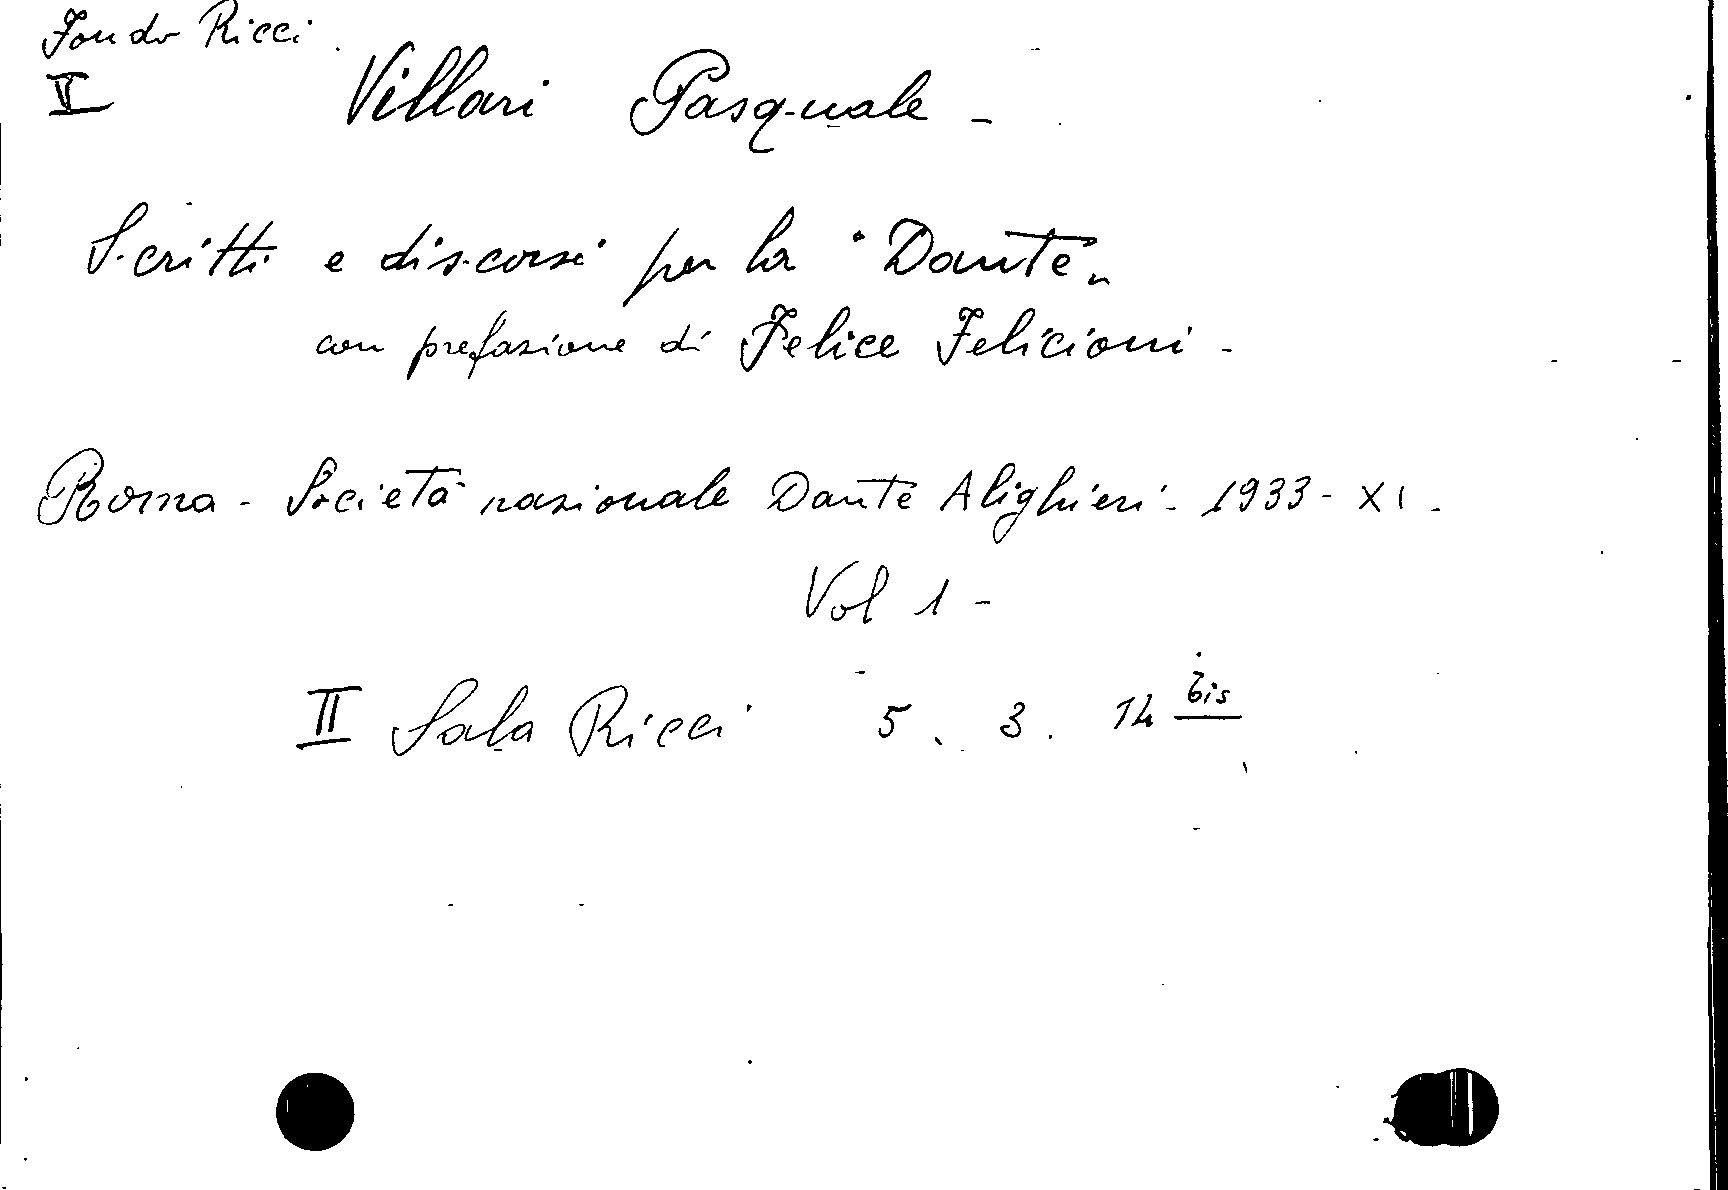 Fondo Ricci
V Villari Pasquale -
Scritti e discorsi per la "Dante"
con prefazione di Felice Felicioni -
Roma - Società nazionale Dante Alighieri - 1933 - XI -
Vol 1 -
II Sala Ricci 5. 3. 14 bis